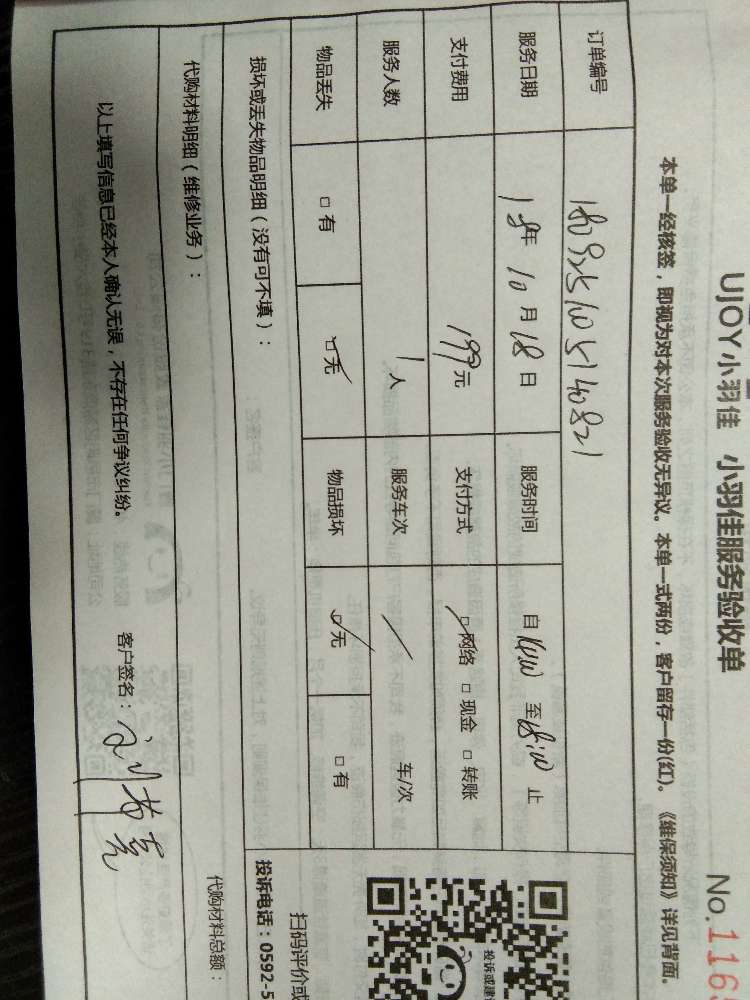 UJOY小羽佳 小羽佳服务验收单
No.116
本单一经核签，即视为对本次服务验收无异议。本单一式两份，客户留存一份(红)。《维保须知》详见背面。
订单编号 1809251005140821
服务日期 18年 10月 18日 服务时间 自 至 18:00 止
支付费用 199元 支付方式 ☑网络 □现金 □转账
服务人数 1人 服务车次 / 车/次
物品丢失 □有 ☑无 物品损坏 ☑无 □有
损坏或丢失物品明细（没有可不填）：
代购材料明细（维修业务）：
代购材料总额：
以上填写信息已经本人确认无误，不存在任何争议纠纷。
客户签名：
投诉或建
扫码评价或
投诉电话：0592-5